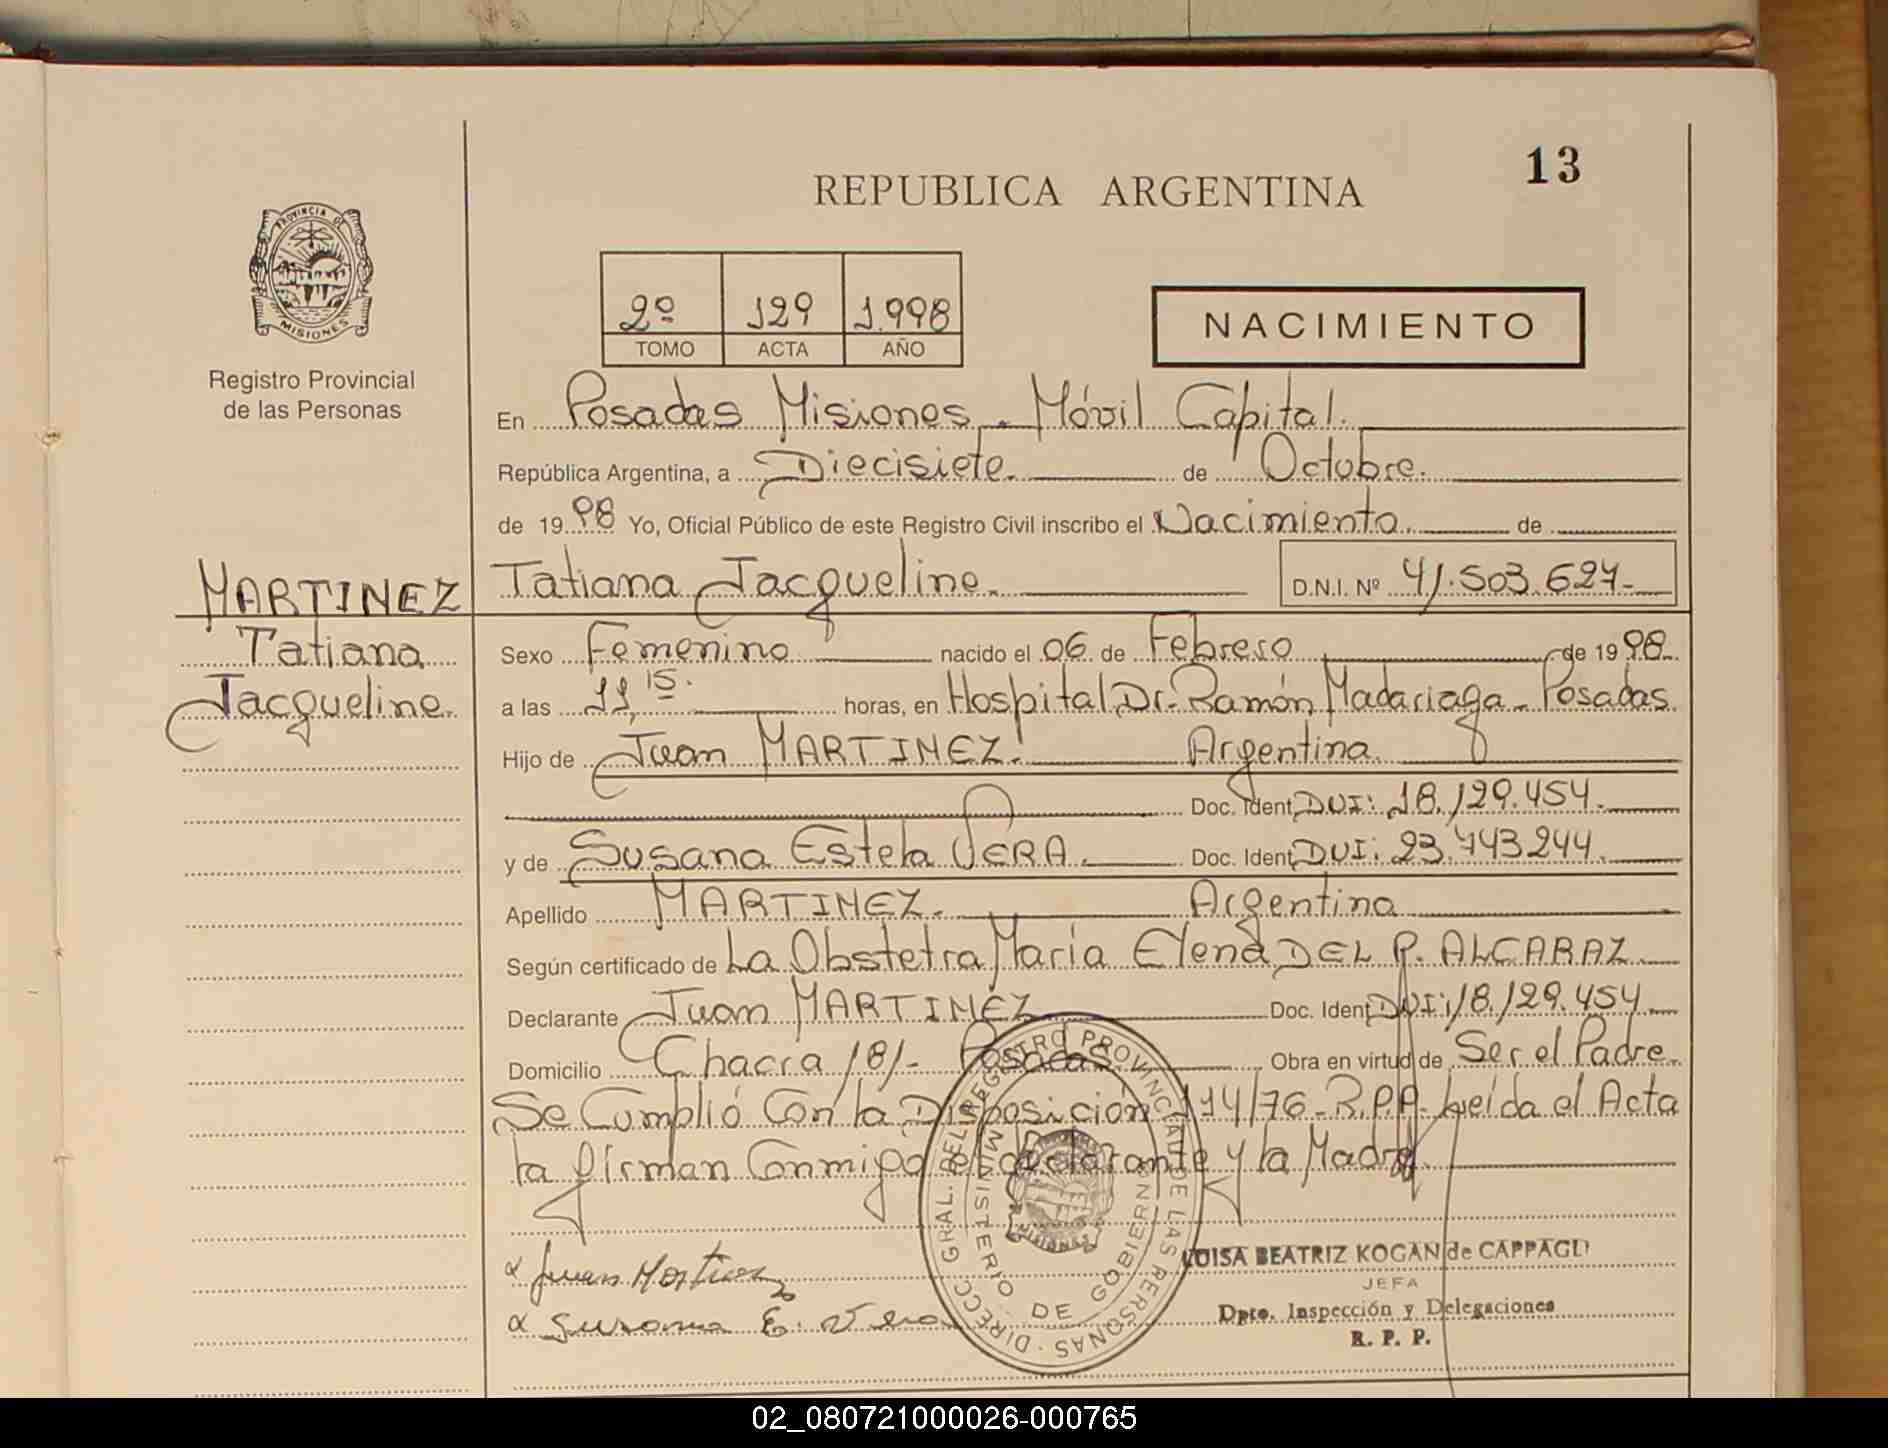 13
REPUBLICA ARGENTINA
PROVINCIA DE
MISIONES
Registro Provincial
de las Personas
2º 129 1.998
TOMO ACTA AÑO
NACIMIENTO
En Posadas Misiones - Móvil Capital.
República Argentina, a Diecisiete. de Octubre.
de 1998 Yo, Oficial Público de este Registro Civil inscribo el Nacimiento. de
MARTINEZ
Tatiana
Jacqueline.
Tatiana Jacqueline. D.N.I. Nº 41.503.627-
Sexo Femenino nacido el 06 de Febrero de 1998.
a las 11,15. horas, en Hospital Dr. Ramón Madariaga - Posadas.
Hijo de Juan MARTINEZ. Argentina.
Doc. Ident. DNI: 18.129.454.
y de Susana Estela VERA. Doc. Ident. DNI: 23.743.244.
Apellido MARTINEZ. Argentina
Según certificado de La Obstetra María Elena DEL P. ALCARAZ
Declarante Juan MARTINEZ Doc. Ident. DNI: 18.129.454
Domicilio Chacra 181- Posadas. Obra en virtud de Ser el Padre.
Se Cumplió Con la Disposición 114/76 - R.P.P. Leída el Acta
la firman Conmigo el declarante y la Madre.
Juan Martinez
Susana E. Vera
DIRECC GRAL. DEL REGISTRO PROVINCIAL DE LAS PERSONAS
MINISTERIO DE GOBIERNO
MISIONES
LUISA BEATRIZ KOGAN de CAPPAGLI
JEFA
Dpto. Inspección y Delegaciones
R. P. P.
02_080721000026-000765